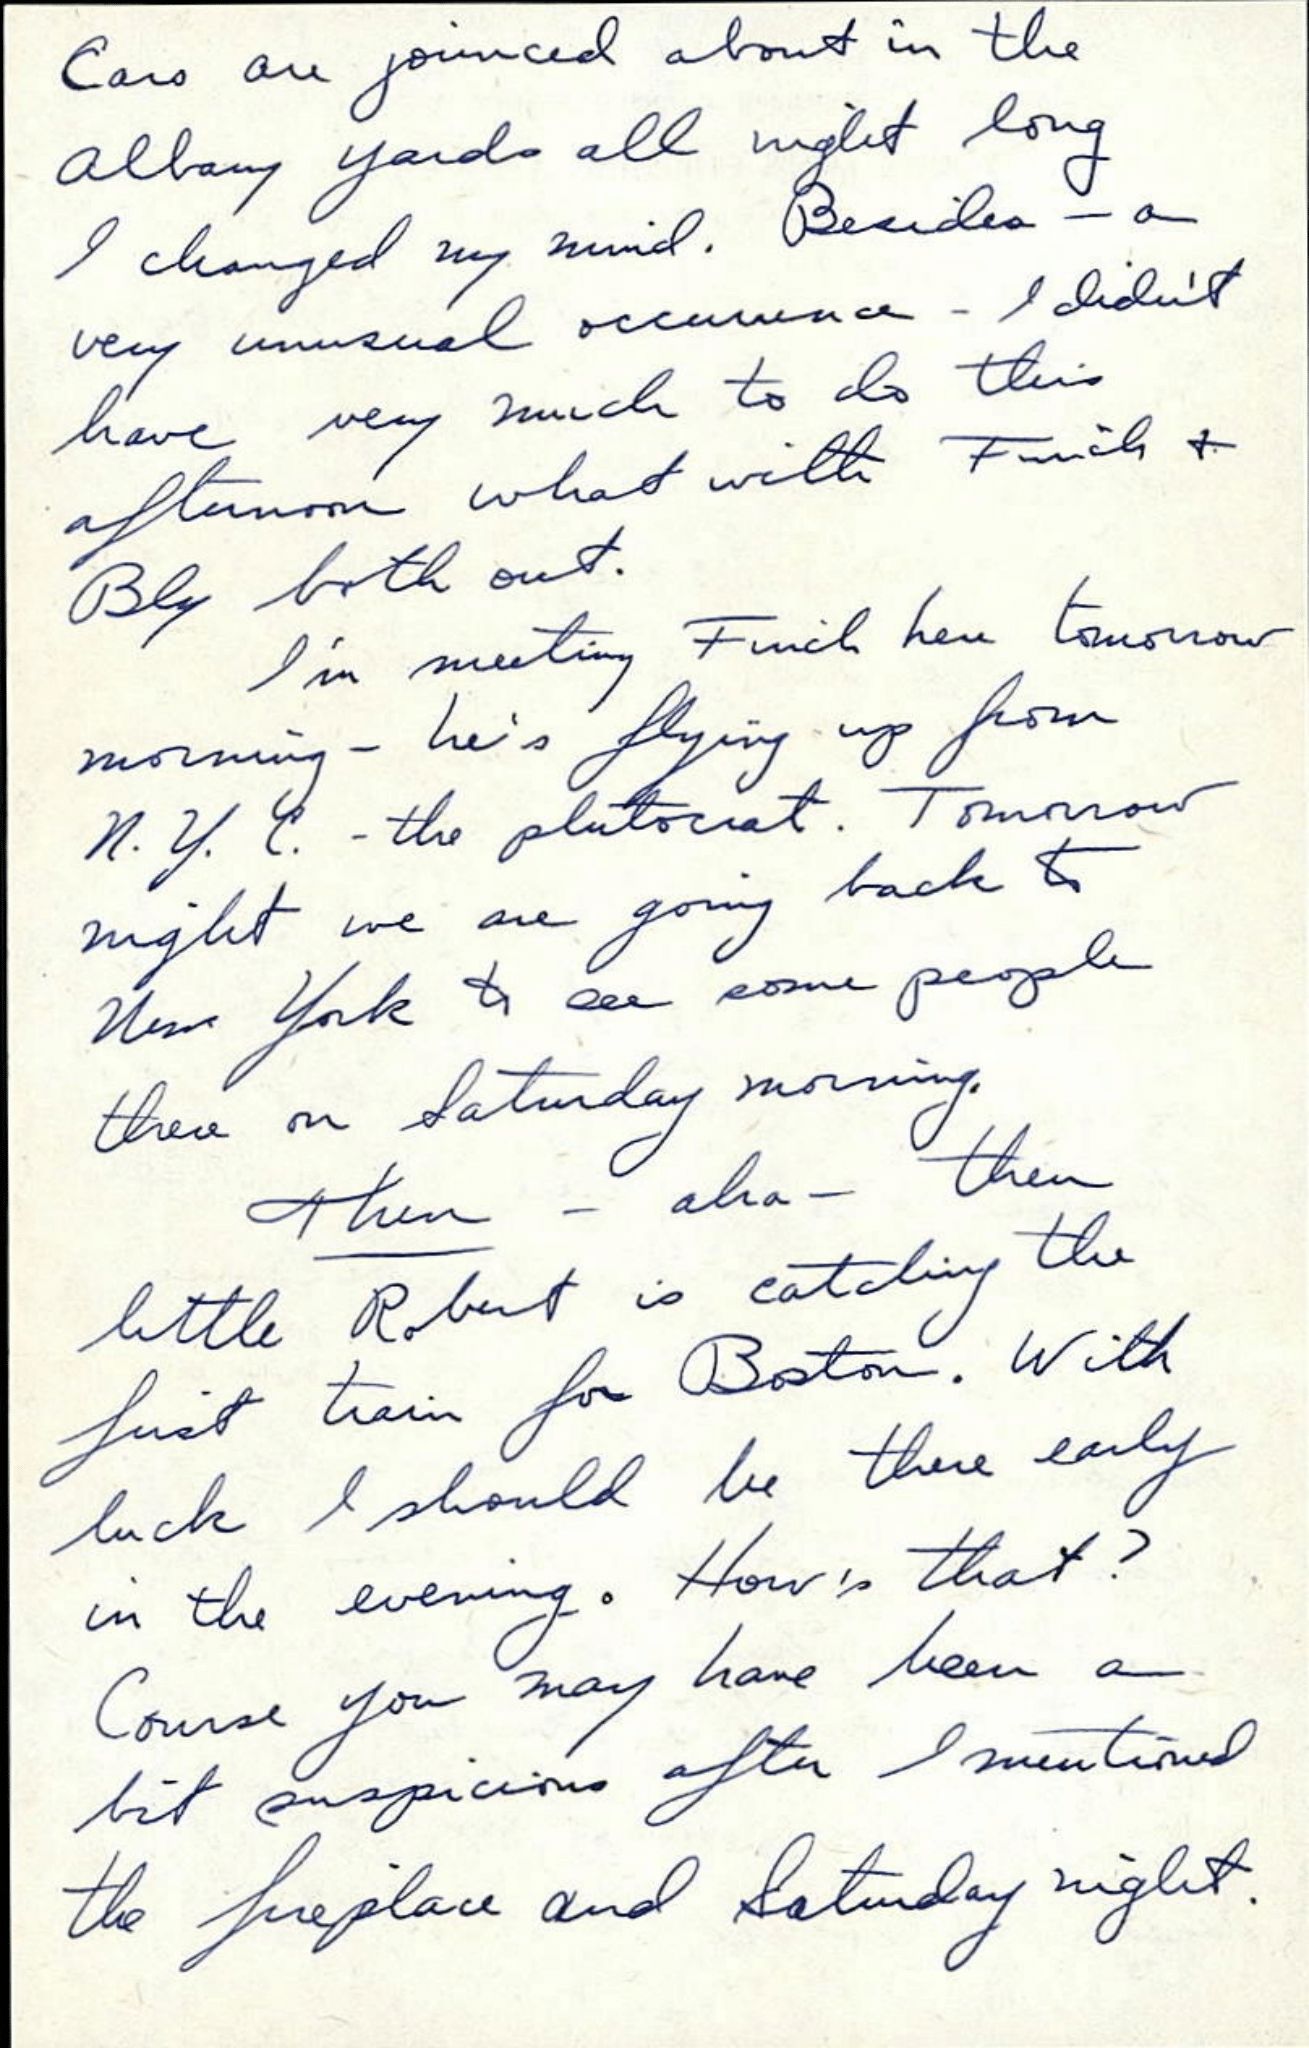 Cars are jounced about in the
Albany yards all night long
I changed my mind. Besides - a
very unusual occurrence - I didn't
have very much to do this
afternoon what with Finch +
Bly both out.
I'm meeting Finch here tomorrow
morning - he's flying up from
N.Y.C. - the plutocrat. Tomorrow
night we are going back to
New York to see some people
there on Saturday morning.
Then - aha - then
little Robert is catching the
first train for Boston. With
luck I should be there early
in the evening. How's that?
Course you may have been a
bit suspicious after I mentioned
the fireplace and Saturday night.